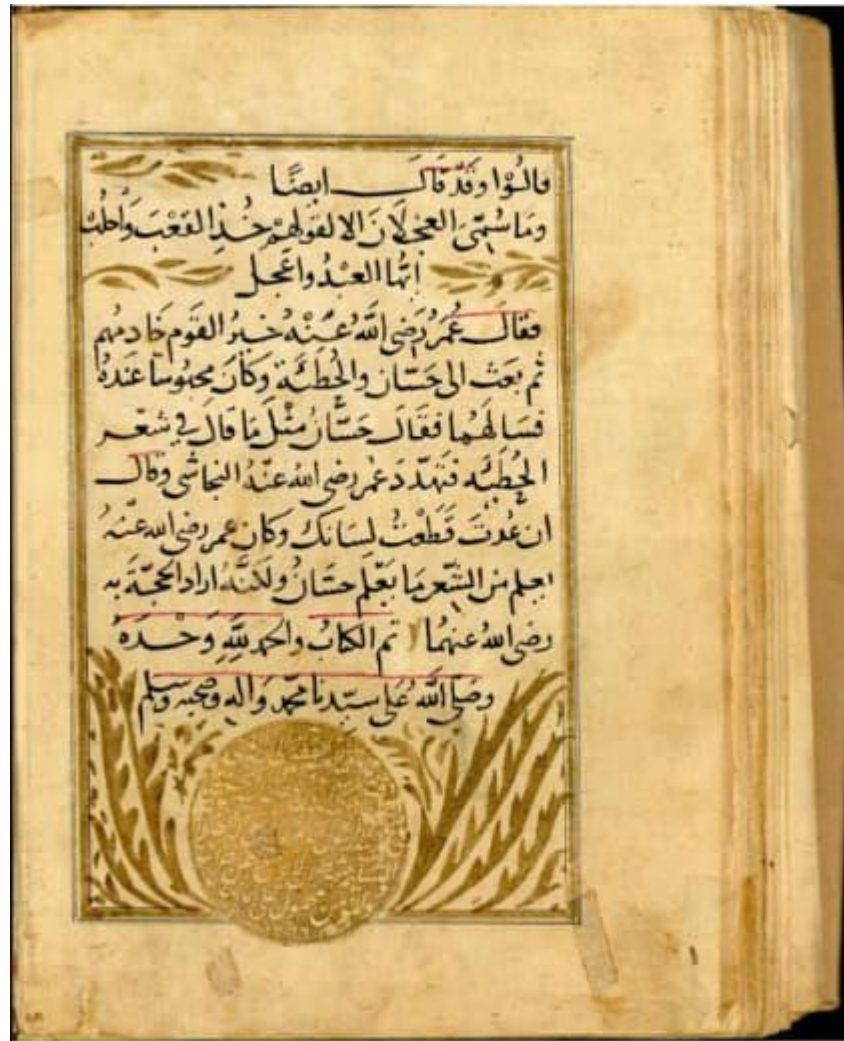 قالوا وقد قال ايضًا
وما سُمّىَ العجلان الا لقولهم خُذِ القَعْبَ وَاحلُبْ
ايّها العبْدُ واعجل
فقال عُمَرُ رَضى اللَّهُ عَنْهُ خيرُ القَوم خَادمُهم
ثم بعَث الى حَسّان والحُطَئَة وَكانَ محبُوسًا عندهُ
فسَالهُما فقالَ حَسَّانُ مثْلَ مَا قالَ فى شعْر
الحُطَئِه فتهَدّدَ عُمر رضى الله عنهُ النجاشى وقال
ان عُدْتَ قَطَعْتُ لسَانك وكان عمر رضى الله عنهُ
يعلم من الشّعر مَا يَعْلم حسَانُ ولكنّهُ اراد الحجّةَ به
رضى اللهُ عنهُما تم الكتابُ والحمد للَّهِ وَحْدَهُ
وَصَلّى اللَّهُ عَلى سيّدنا محمّد وَاله وَصحبه وسلم